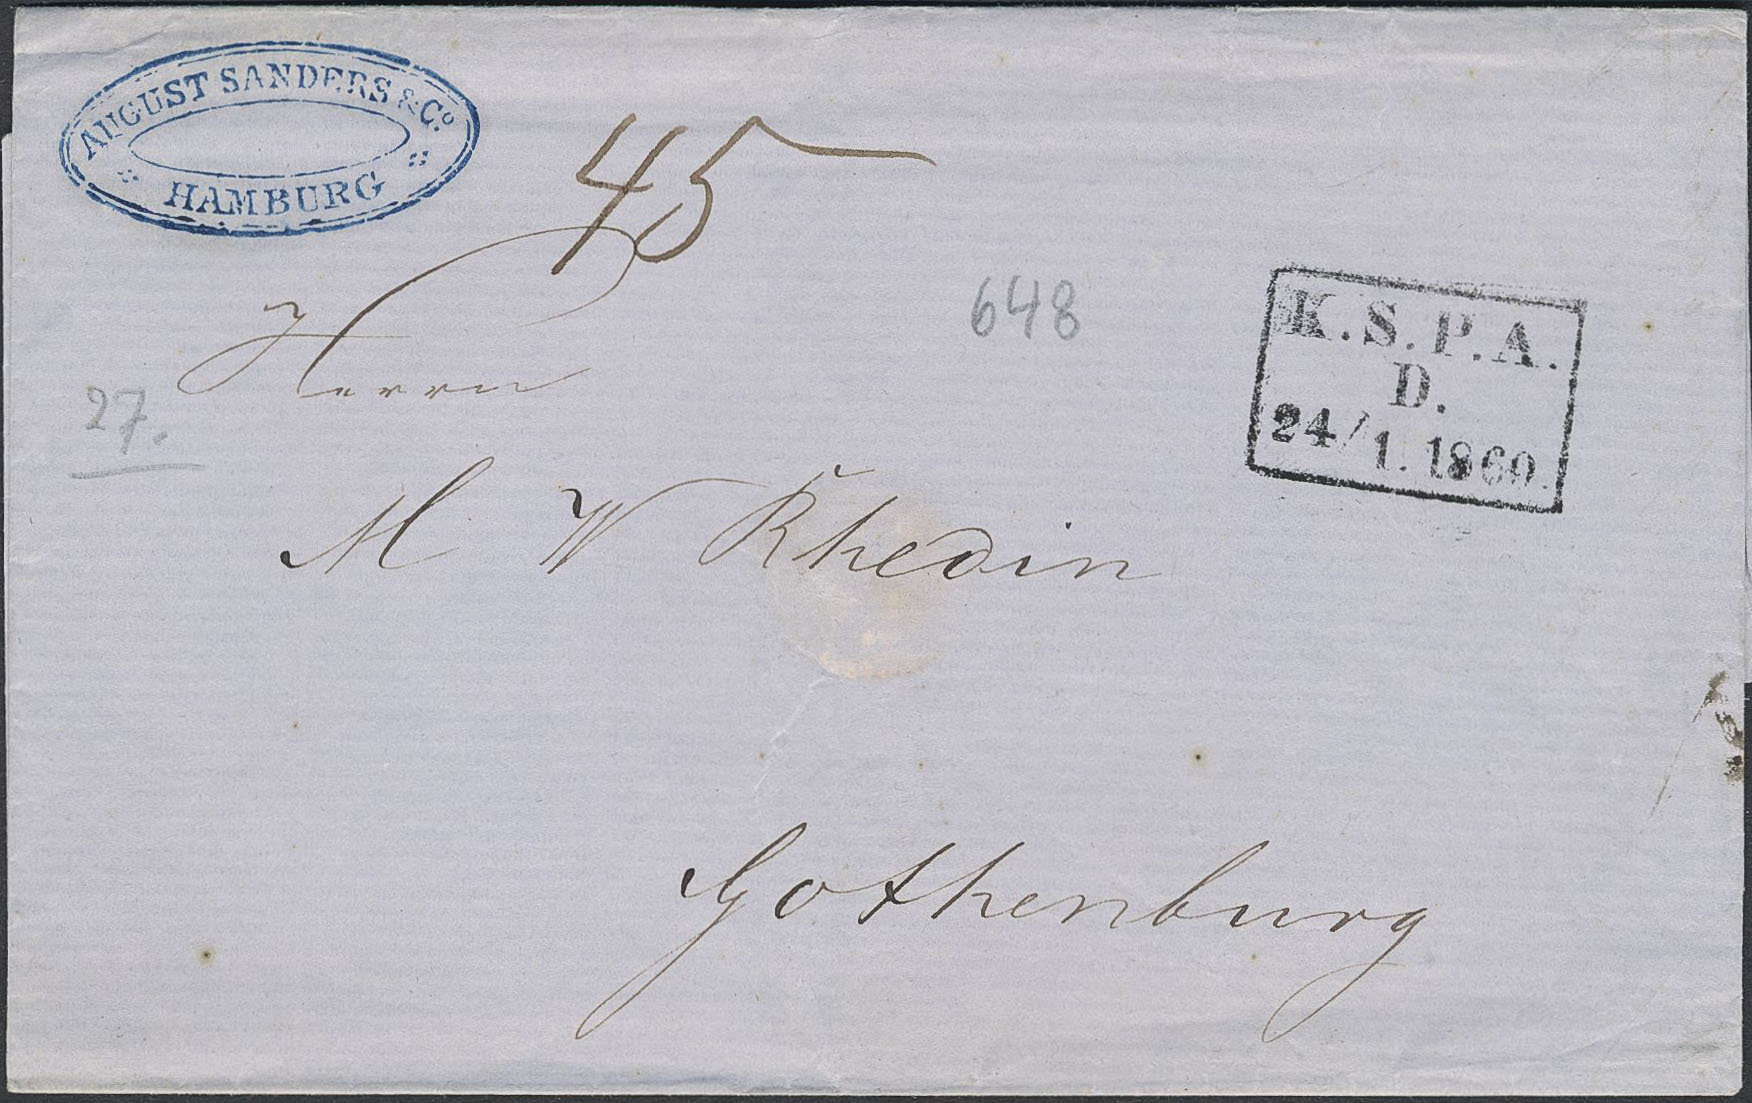 AUGUST SANDERS & Co.
HAMBURG
45
Herrn
648
K.S.P.A.
D.
24/1.1860.
27.
M W Rhedin
Gothenburg